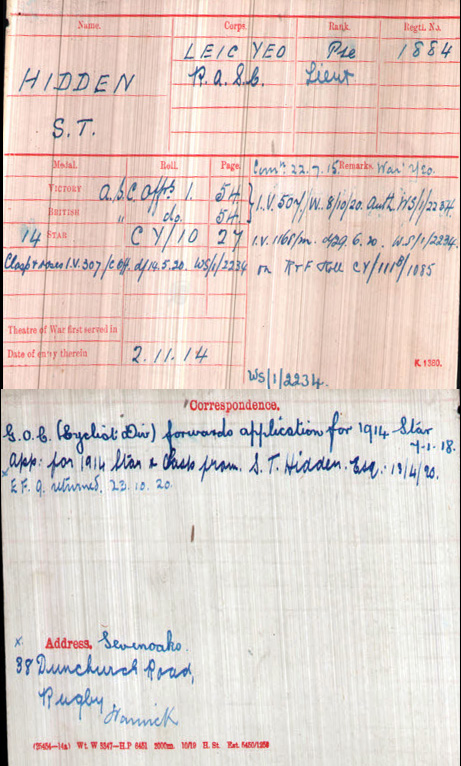 Name. Corps. Rank. Regtl. No.
HIDDEN LEIC YEO Pte 1884
S.T. R.A.S.C. Lieut
Medal. Roll. Page. Comn. 22.7.15. Remarks. War 2/20.
VICTORY A.S.C. Offrs 1. 54 I.V. 507/W. 8/10/20. Auth. WS/1/2234.
BRITISH " do. 54
14 STAR CY/10 27 I.V. 1165/m. d/29.6.20. WS/1/2234.
Clasp & roses I.V. 307/C Off. d/14.5.20. WS/1/2234 on R & F Roll CY/111B/1085
Theatre of War first served in
Date of entry therein 2.11.14
K. 1380.
WS/1/2234.
Correspondence.
G.O.C. (Cyclist Div) forwards application for 1914 Star
7-1-18.
App: for 1914 Star & Clasp from S. T. Hidden. Esq. 13/4/20.
x E F. 9. returned. 23.10.20.
x Address. Sevenoaks.
38 Dunchurch Road,
Rugby
Warwick
(25454—14a) Wt. W 5347—H.P 5451 2000m. 10/19 H. St. Est. 5450/1250